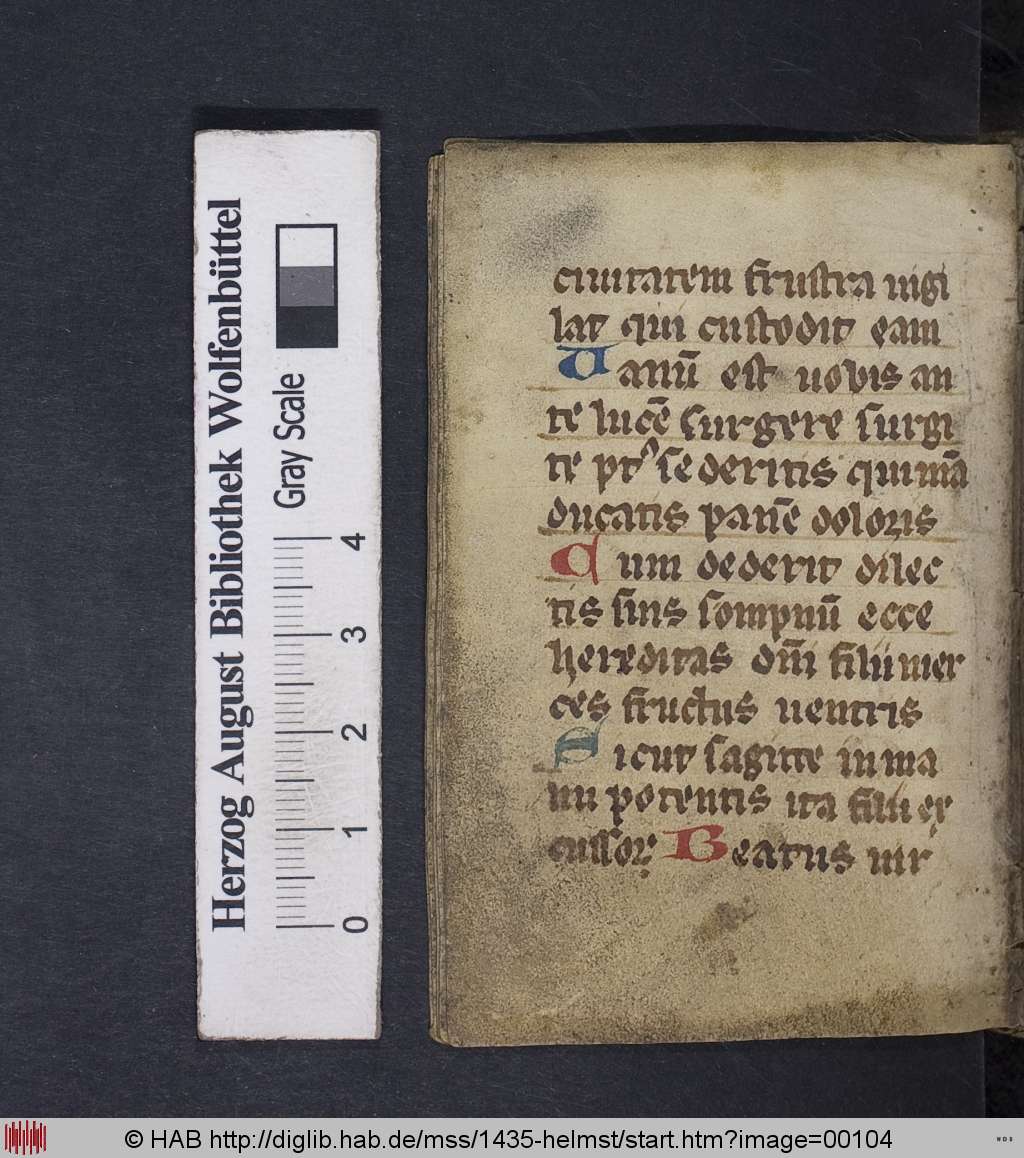 Herzog August Bibliothek Wolfenbüttel
Gray Scale
0 1 2 3 4
ciuitatem frustra uigi
lat qui custodit eam
Uanū est uobis an
te lucē surgere surgi
te pt᾽ sederitis qui mā
ducatis panē doloris
Cum dederit dilec
tis suis sompnū ecce
hereditas dn̄i filii mer
ces fructus uentris
Sicut sagitte in ma
nu potentis ita filii ex
cussoꝝ Beatus uir
© HAB http://diglib.hab.de/mss/1435-helmst/start.htm?image=00104